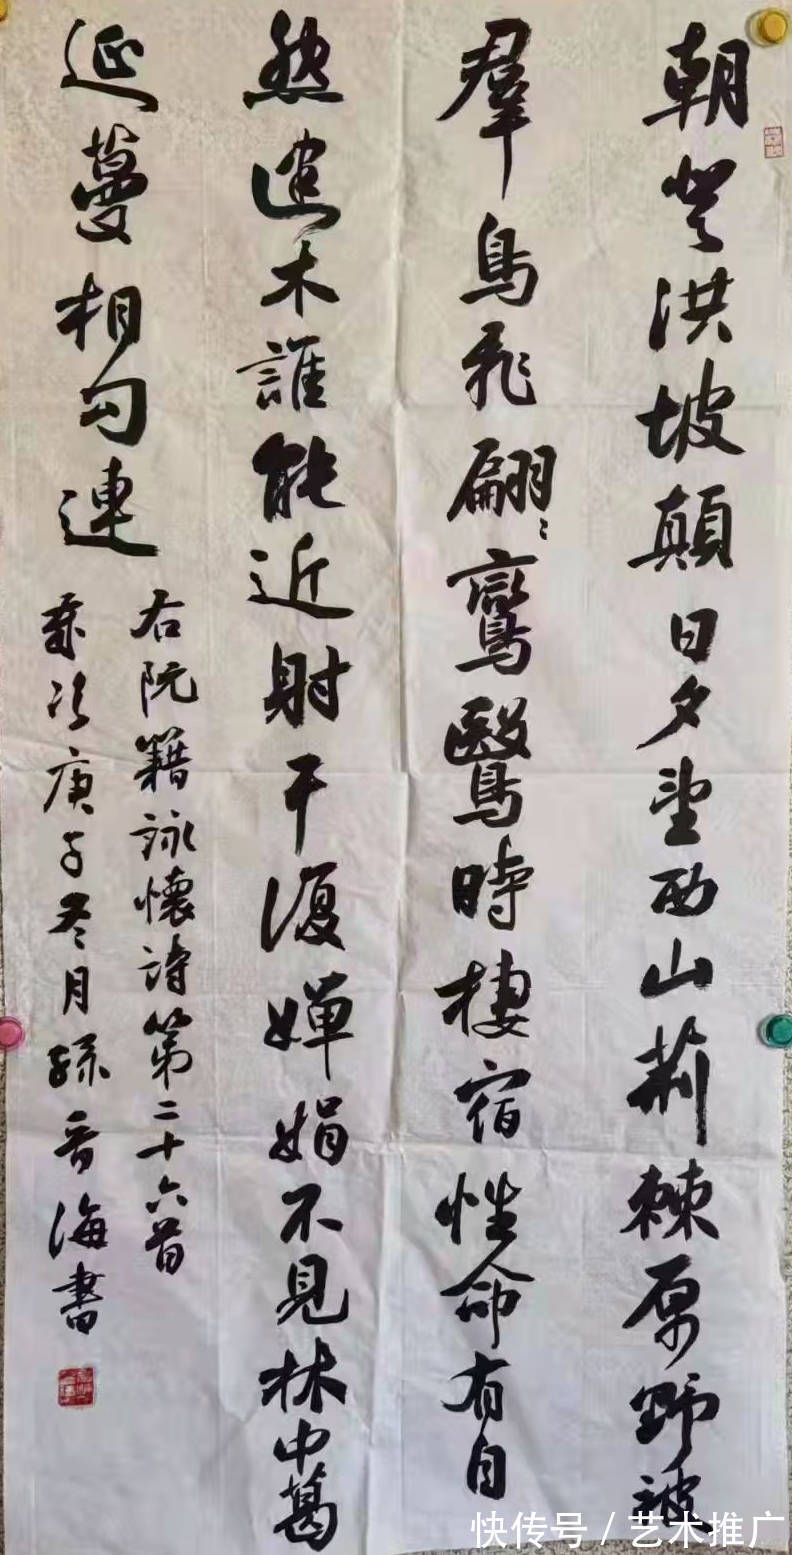 朝登洪坡顛日夕望西山荊棘原野被
羣鳥飛翩〻鸞鷖時棲宿性命有自
然建木誰能近射干復嬋娟不見林中葛
延蔓相勾連
右阮籍詠懷詩第二十六首
歲次庚子冬月孫海書
快传号 / 艺术推广